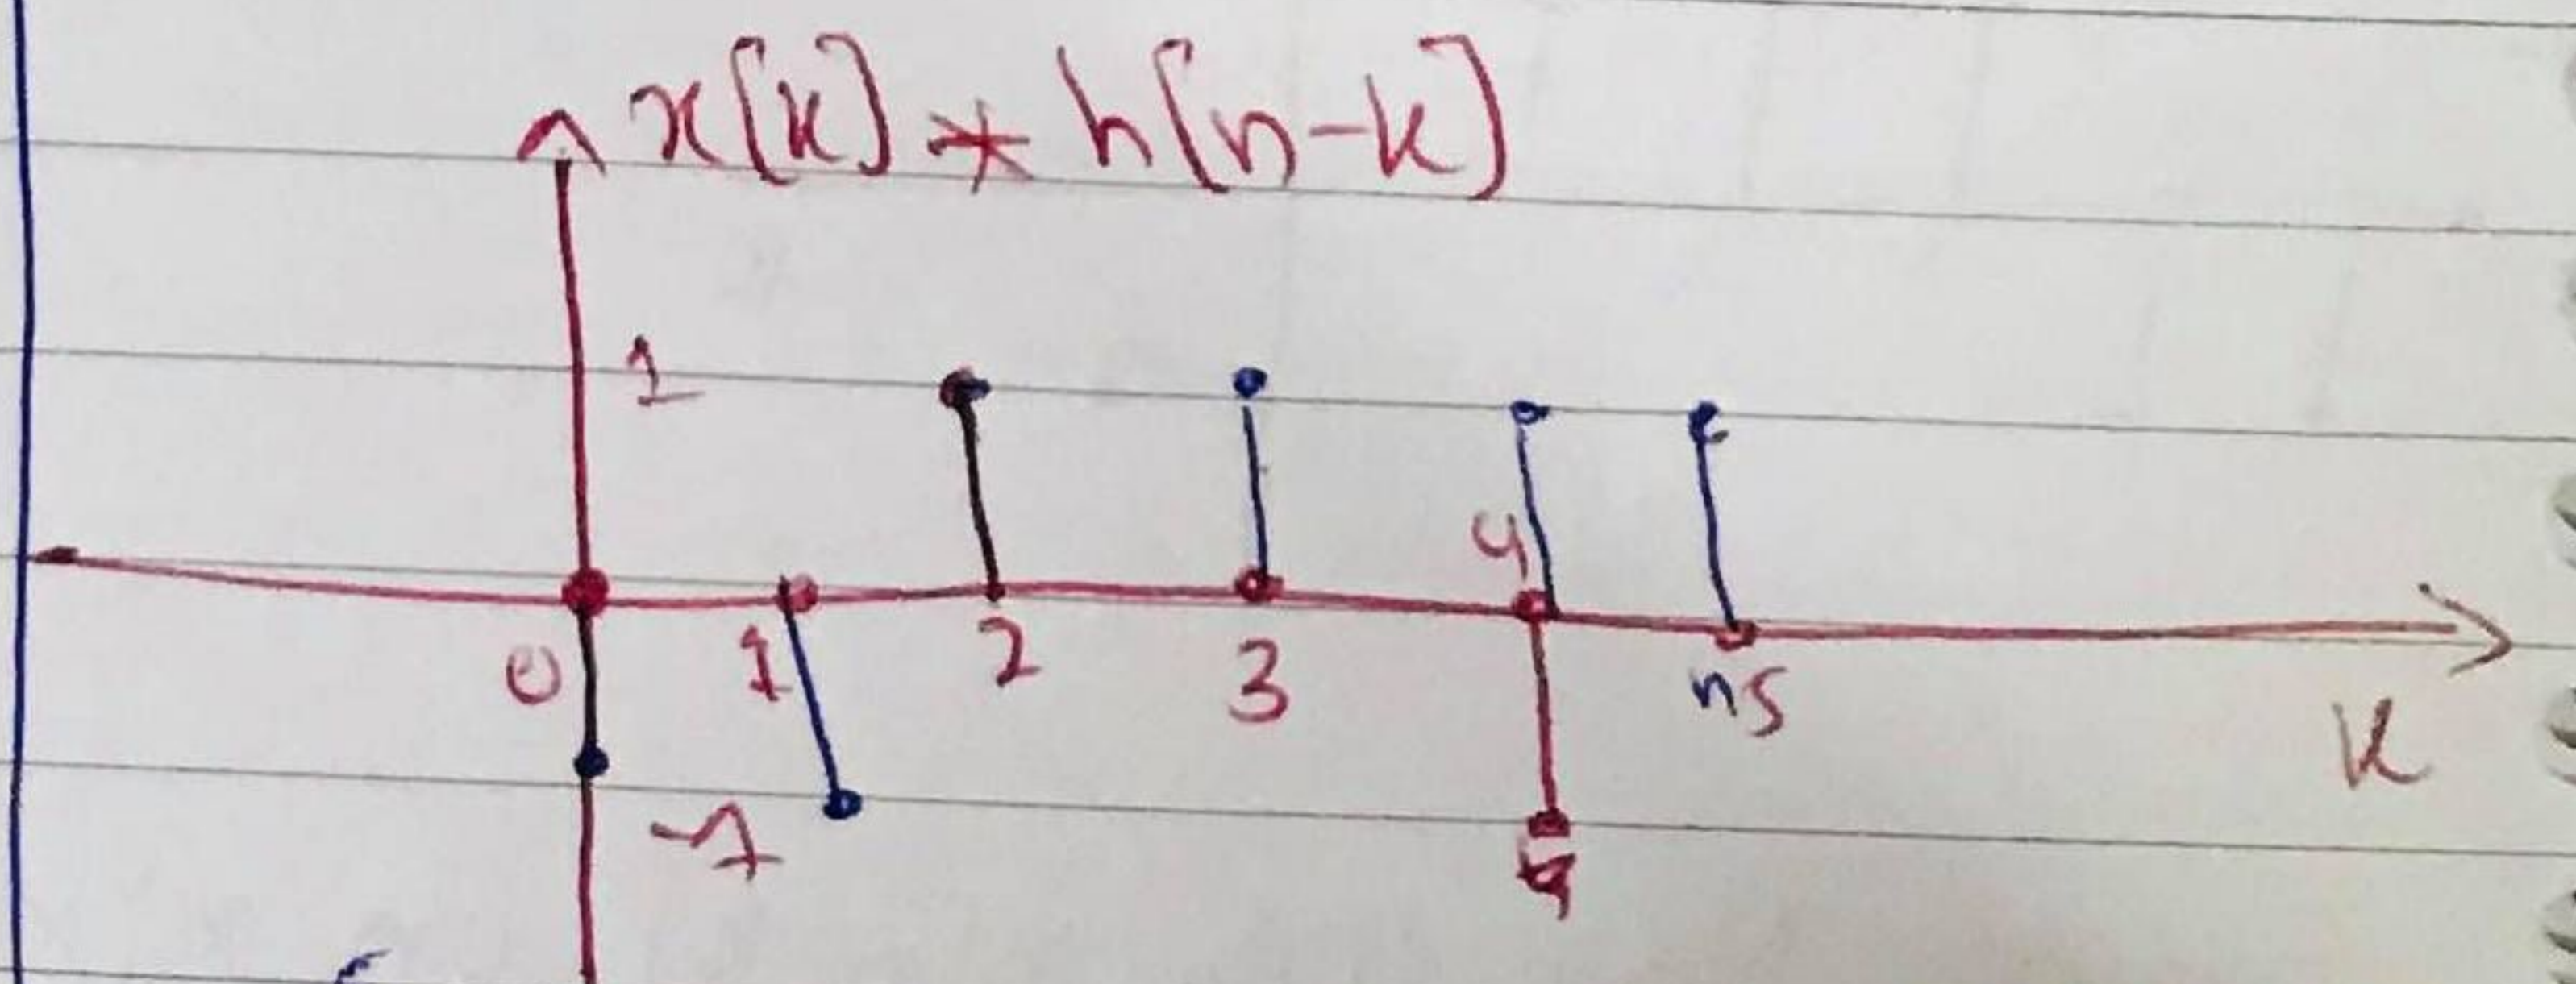 x[k] * h[n-k]
1
4
0 1 2 3 n5
k
-1